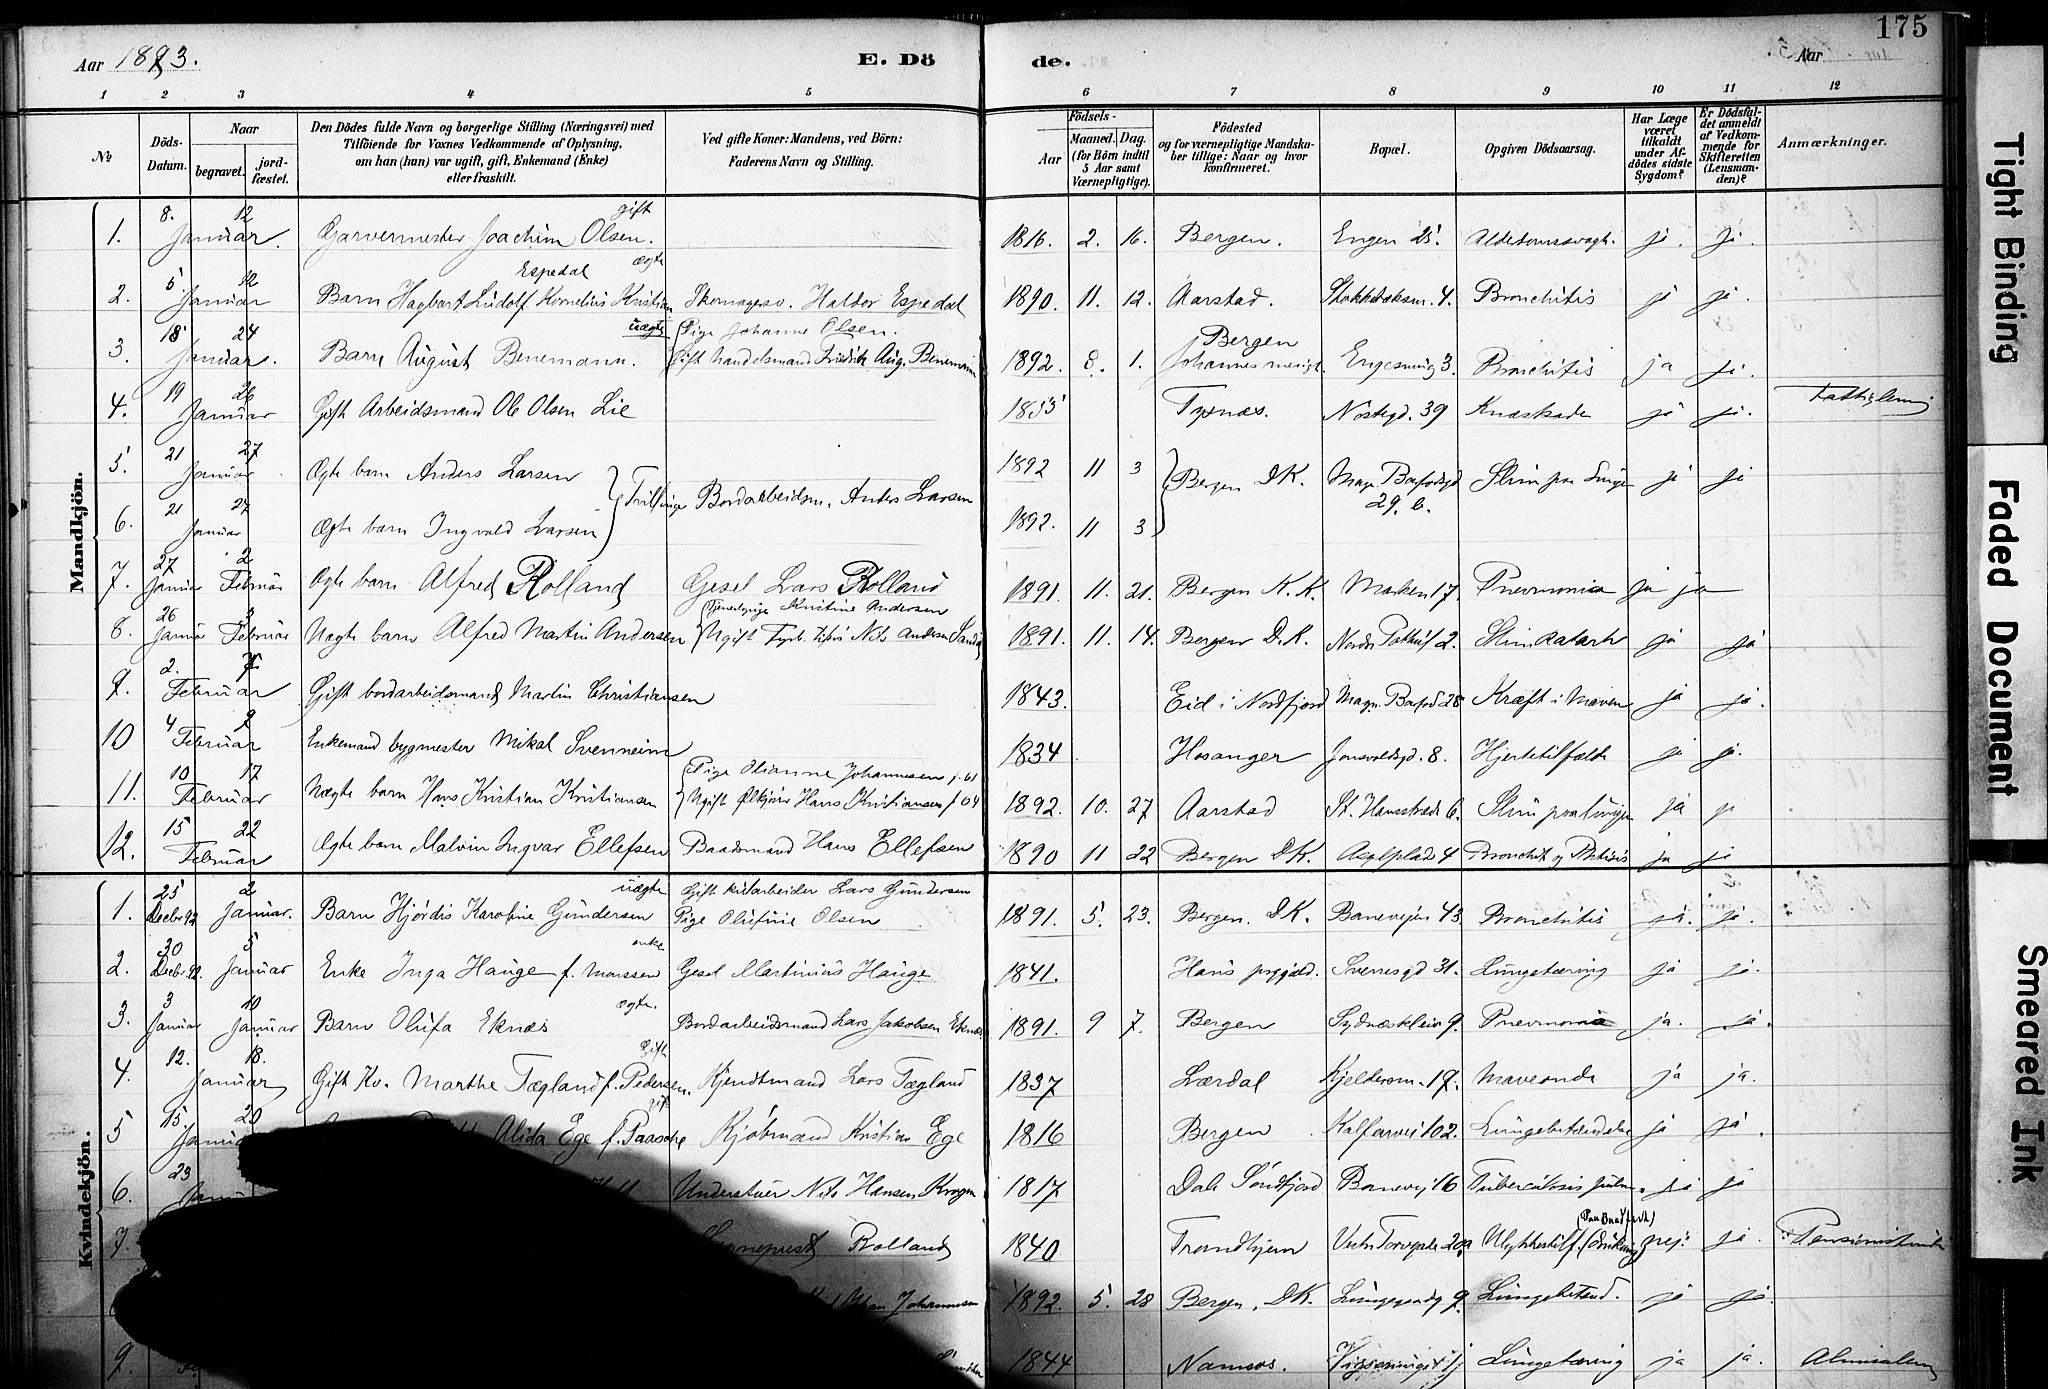 175
Aar 1893.
E. Dö
de.
Aar
1 2 3 4 5 6 7 8 9 10 11 12
№
Döds-Datum.
Naar
begravet.
jord-fæstet.
Den Dödes fulde Navn og borgerlige Stilling (Næringsvei) med
Tilföiende for Voxnes Vedkommende af Oplysning,
om han (hun) var ugift, gift, Enkemand (Enke)
eller fraskilt.
Ved gifte Koner: Mandens, ved Börn:
Faderens Navn og Stilling.
Födsels-
Aar
Maaned. Dag.
(for Börn indtil
5 Aar samt
Værnepligtige).
Födested
og for værnepligtige Mandska-
ber tillige: Naar og hvor
konfirmeret.
Bopæl.
Opgiven Dödsaarsag.
Har Læge
været
tilkaldt
under Af-
dödes sidste
Sygdom?
Er Dödsfal-
det anmeldt
af Vedkom-
mende for
Skifteretten
(Lensman-
den)?
Anmærkninger.
Mandkjön.
1. 8. Januar 12 Garvermester Joachim Olsen. gift 1816. 2. 16. Bergen. Engen 25. ja. ja.
2. 5. Januar 12 Barn Hagbart Ludolf Kornelius Kristian Espedal ægte Skomagesv. Haldor Espedal 1890. 11. 12. Aarstad. 4. Bronchitis ja ja.
3. 18 Januar. 24 Barn August Benemann. uægte Pige Johanne Olsen.
Gift Handelsmand Fredrik Aug. Benemann 1892. 8. 1. Bergen Johannes menigh. Engesmug 3. Bronchitis ja ja.
4. 19 Januar 26 Gift Arbeidsmand Ole Olsen Lie 1855 Tysnes. Nostegd. 39 Knæskade ja ja. Fattiglem
5. 21 Januar 27 Ægte barn Anders Larsen Tvillinge Bordarbeidsm. Anders Larsen 1892 11 3 Bergen DK. Magn. Barfodsgd 29. b. Slim paa Lunge ja ja
6. 21 Januar 27 Ægte barn Ingvald Larsen 1892. 11 3
7. 27 Januar 2 Februar Ægte barn Alfred Rolland Gesel Lars Rolland 1891. 11. 21. Bergen K. K. Marken 17. Pneumonia ja ja
8. 26 Januar 3 Februar Uægte barn Alfred Martin Andersen Tjenestepige Kristine Andersen
Ugift Fyrb. Nils Andersen 1891. 11. 14. Bergen D.K. 2. Slimkatarh ja ja
9. 2. Februar 7 Gift bordarbeidsmand Martin Christiansen 1843. Eid i Nordfjord Magn. Barfod 28 Kræft i Maven ja ja.
10 4 Februar 9 Enkemand bygmester Mikal Svenheim 1834 Hosanger Jonsvoldsgd. 8. Hjertetilfælde ja ja.
11. 10 Februar 17 Uægte barn Hans Kristian Kristiansen Pige Olianne Johannesen f. 61
Ugift Hans Kristiansen f. 64 1892. 10. 27 Aarstad St. Hansstræde 6. Slim paa lunger ja ja
12. 15 Februar 22 Ægte barn Malvin Ingvar Ellefsen Baadsmand Hans Ellefsen 1890 11 22 Bergen DK. 4 Bronchit og Phtisis ja ja
Kvindekjön.
1. 25 Decbr 92 2 Januar. Barn Hjørdis Karoline Gundersen uægte Gift Lars Gundersen
Pige Olufine Olsen 1891. 5. 23. Bergen. DK. Banevejen 43. Bronchitis ja. ja.
2. 30 Decbr. 92. 5 Januar Enke Inga Hauge f. Monssen enke Gesel Martinius Hauge 1841. Haus prgjæld. Sverresgd 31. Lungetæring ja ja.
3. 3 Januar 10 Januar Barn Olufa Eknæs ægte. Bordarbeidsmand Lars Jakobsen Eknæs 1891. 9 7. Bergen Sydnæskleiv 9. Pneumonia ja. ja.
4. 12. Januar 18. Gift Kv. Marthe Tægland f. Pedersen. Gift Kjendtmand Lars Tægland 1837 Lærdal Kjeldersm. 17. Maveonde ja ja.
5 15. Januar 20 Alida Ege f. Paasche gift Kjöbmand Kristian Ege 1816 Bergen Kalfarvei 102. Lungebetændelse ja ja.
6. 23 Understuer Nils Hansen Krogen 1817 Dale Söndfjord Banevej 16 Tuberculosis pulm. ja ja
7. Sogneprest Rolland 1840 Trondhjem 20a Ulykkestilf. (drukning) nej. ja. Pensionistinde
Johannesen 1892. 5. 28 Bergen, DK. 9. Lungebetænd. ja ja.
9. 1844 Namsos. Lungetæring ja ja. Almisselem
Tight Binding
Faded Document
Smeared Ink